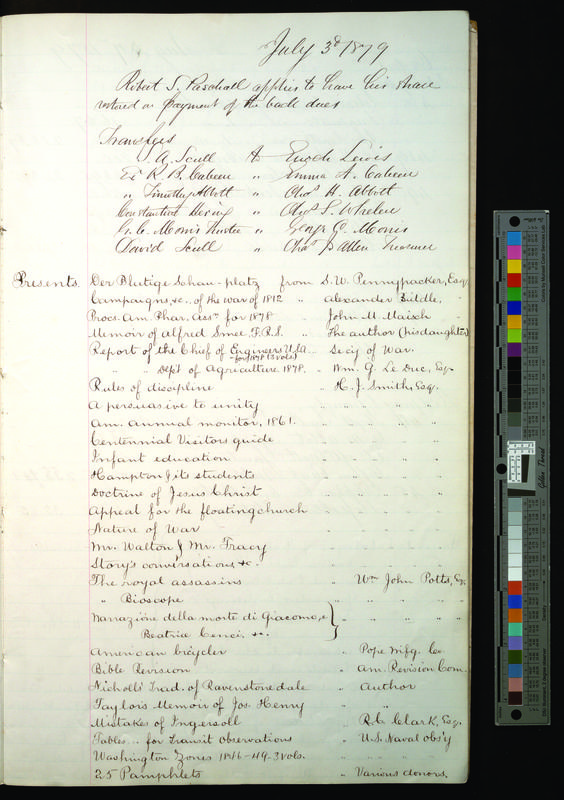 July 3d 1879
Robert S. Paschall applies to have his share
restored on payment of the back dues
Transfers
S. A. Scull to Enoch Lewis
Exr R. B. Cabeen " Emma A. Cabeen
" Timothy Abbott " Chas H. Abbott
Constantine Hering " Chas S. Wheeler
G. C. Morris Trustee " George C. Morris
David Scull " Chas Allen Treasurer
Presents. Der Blutige Schau-platz from S. W. Pennypacker, Esq.
Campaigns, &c., of the war of 1812 " Alexander Biddle, "
Procs. Am. Phar. Assn for 1878 " John M. Maisch "
Memoir of Alfred Smee, F.R.S. " The author (his daughter)
Report of the Chief of Engineers U.S.A. " Sec'y of War.
for 1878 (3 vols)
" " Dep't of Agriculture 1878. " Wm. G. Le Duc, Esq.
Rules of discipline " H. J. Smith, Esq.
A persuasive to unity " " " "
Am. Annual monitor, 1861. " " " "
Centennial Visitors guide " " " "
Infant education " " " "
Hampton & its students " " " "
Doctrine of Jesus Christ " " " "
Appeal for the floating church " " " "
Nature of War " " " "
Mr. Walton & Mr. Tracy " " " "
Story's conversations, &c. " " " "
The royal assassins " Wm John Potts, Esq.
" Bioscope " " " " "
Narrazione della morte di Giacomo, e } " " " " "
Beatrice Cenci, &c.
American bicycler " Pope Mfg. Co.
Bible Revision " Am. Revision Com.
Nicholls' Trad. of Ravenstonedale " Author
Taylor's Memoir of Jos. Henry " "
Mistakes of Ingersoll " R. Clark, Esq.
Tables... for Transit Observations " U.S. Naval Obs'y
Washington Zones 1846-49-3 vols. " " "
25 Pamphlets " Various donors.